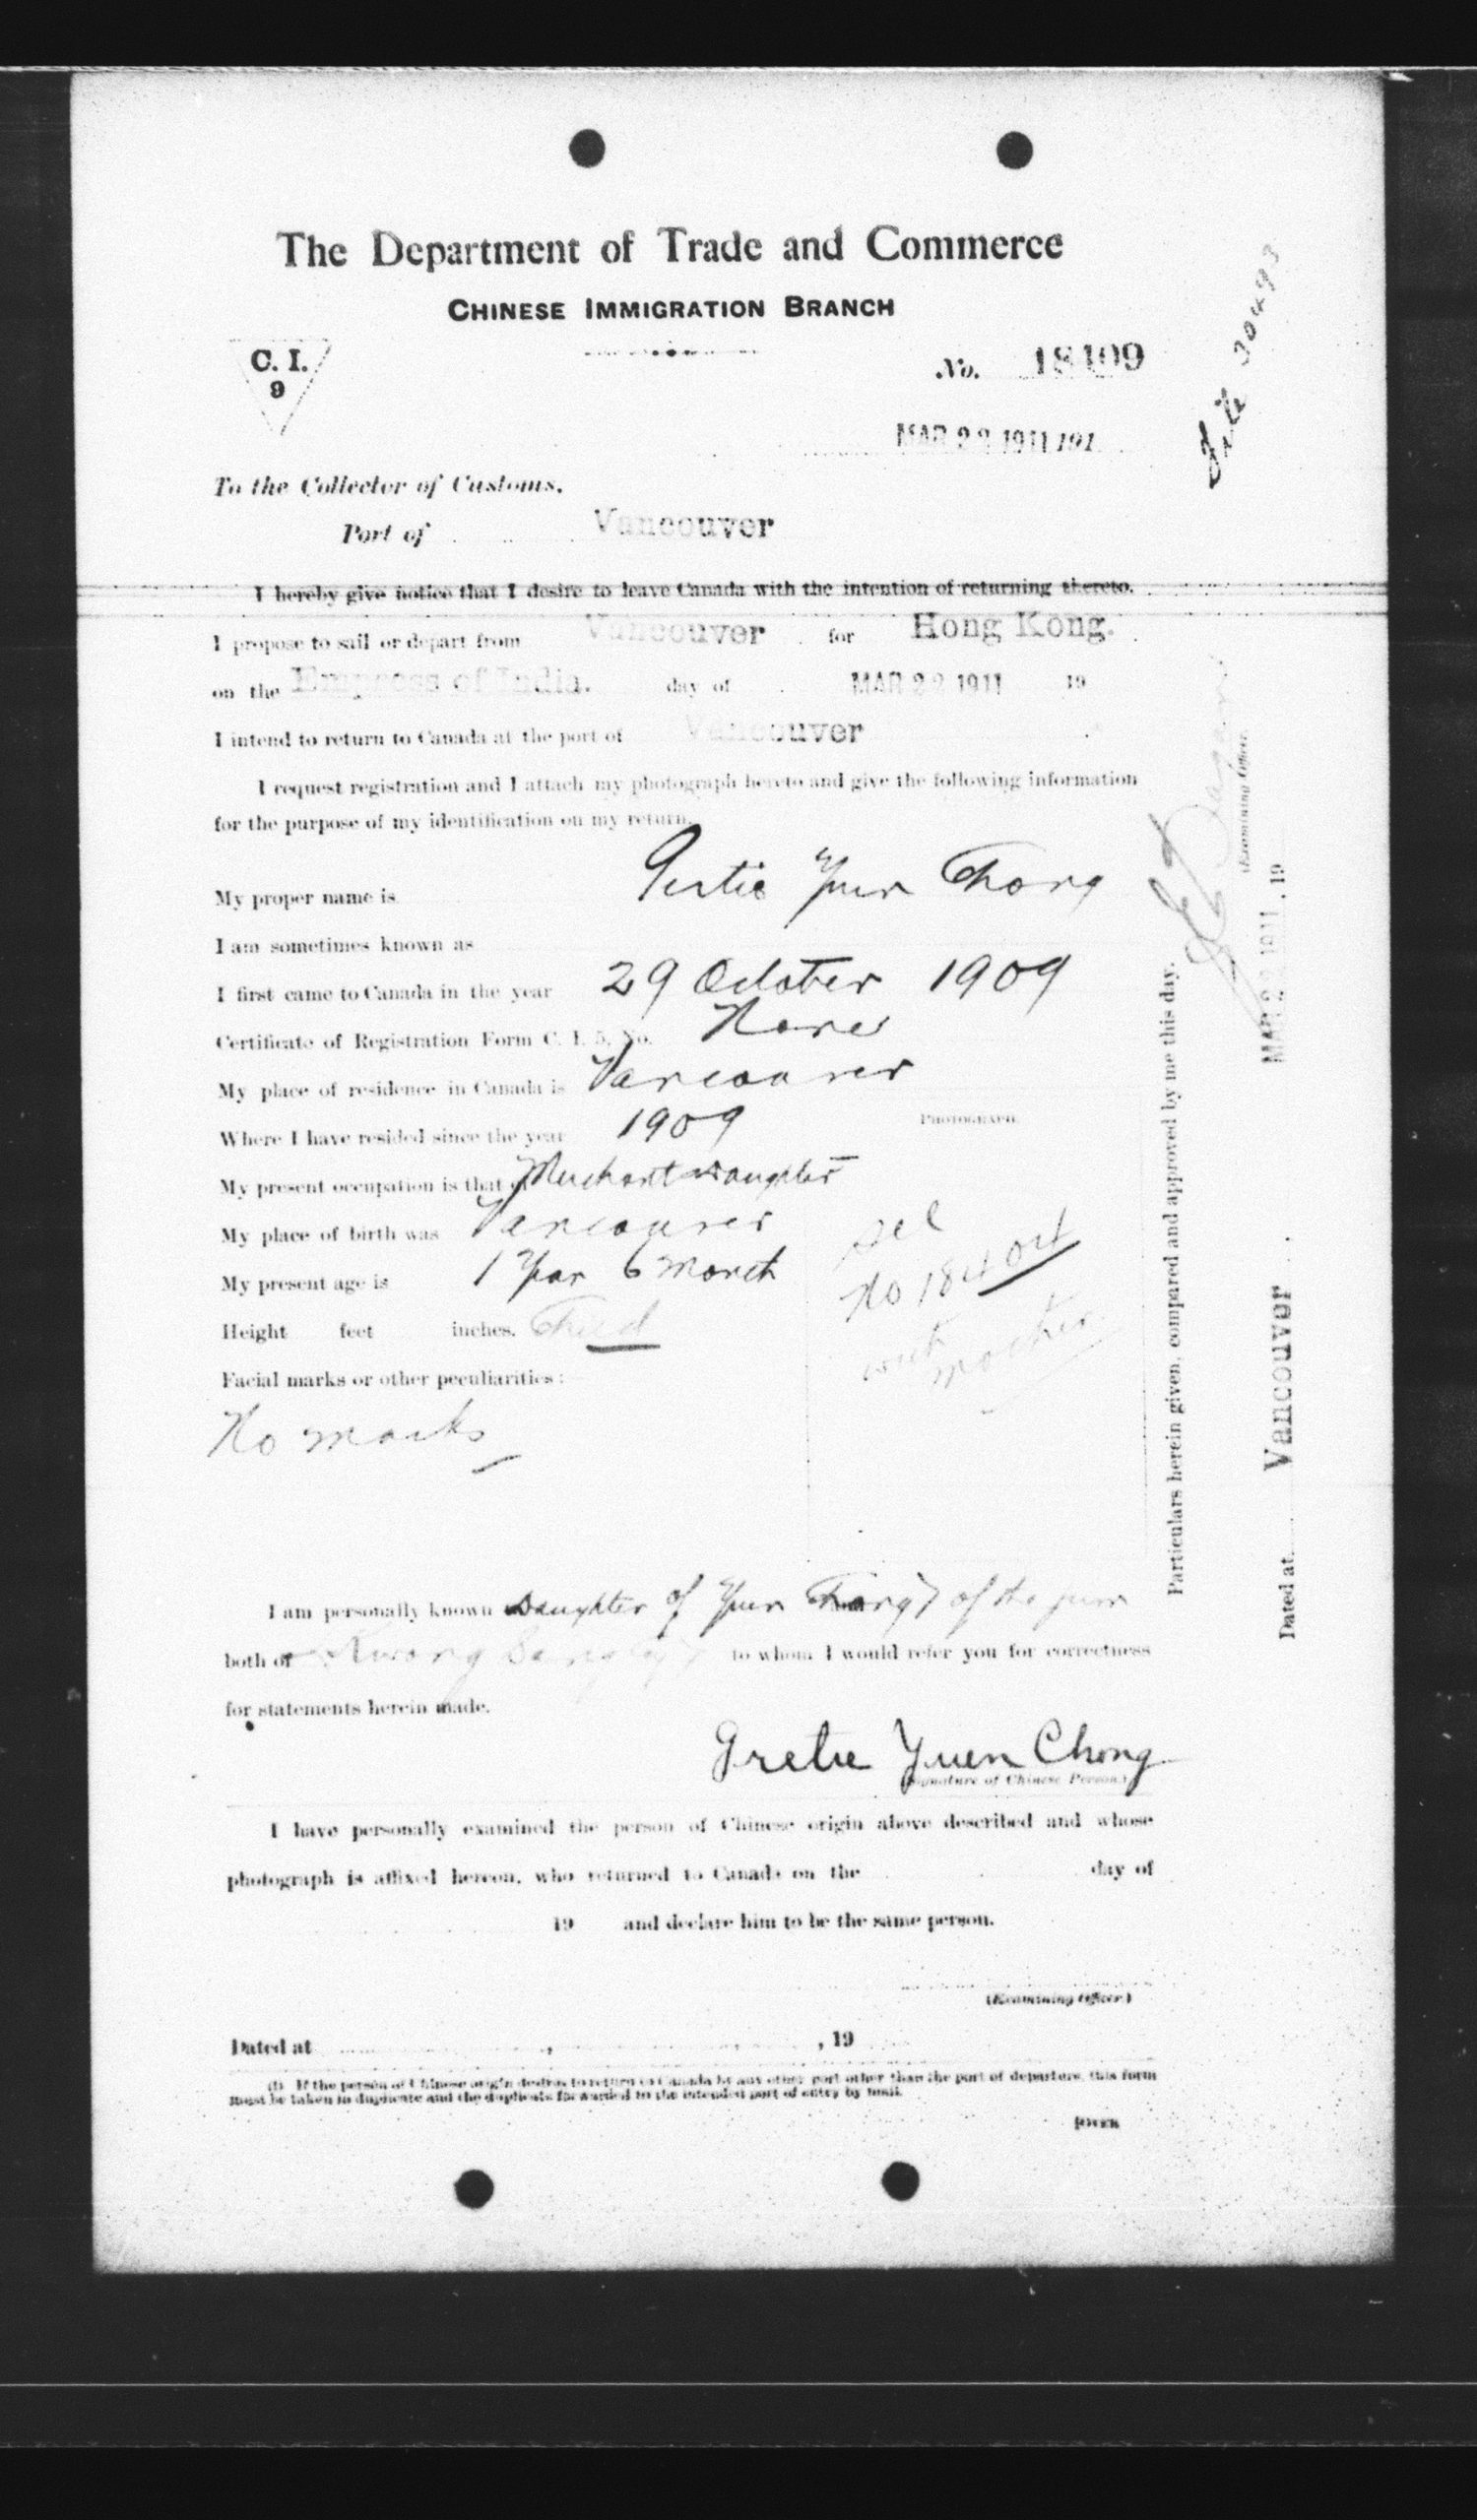 The Department of Trade and Commerce
CHINESE IMMIGRATION BRANCH
C. I.
9
No. 18409
MAR 22 1911 191
To the Collector of Customs,
Port of Vancouver
I hereby give notice that I desire to leave Canada with the intention of returning thereto.
I propose to sail or depart from Vancouver for Hong Kong.
on the Empress of India. day of MAR 22 1911 19
I intend to return to Canada at the port of Vancouver
I request registration and I attach my photograph hereto and give the following information
for the purpose of my identification on my return.
My proper name is Yuen Chong
I am sometimes known as
I first came to Canada in the year 29 October 1909
Certificate of Registration Form C. I. 5, No. None
My place of residence in Canada is Vancouver
Where I have resided since the year 1909
PHOTOGRAPH.
My present occupation is that of Merchant Daughter
My place of birth was Vancouver
My present age is 1 Year 6 Month
Height feet inches. Child
Facial marks or other peculiarities:
No marks
No 18404
with
mother
I am personally known Daughter of Yuen Chong of the firm
both of Kwong to whom I would refer you for correctness
for statements herein made.
Gretie Yuen Chong
(Signature of Chinese Person.)
I have personally examined the person of Chinese origin above described and whose
photograph is affixed hereon, who returned to Canada on the day of
19 and declare him to be the same person.
(Examining Officer.)
Dated at , , 19
(1) If the person of Chinese origin desires to return to Canada by any other port other than the port of departure, this form
must be taken in duplicate and the duplicate forwarded to the intended port of entry by mail.
[OVER
Particulars herein given, compared and approved by me this day.
(Examining Officer.
Dated at Vancouver MAR 22 1911, 19